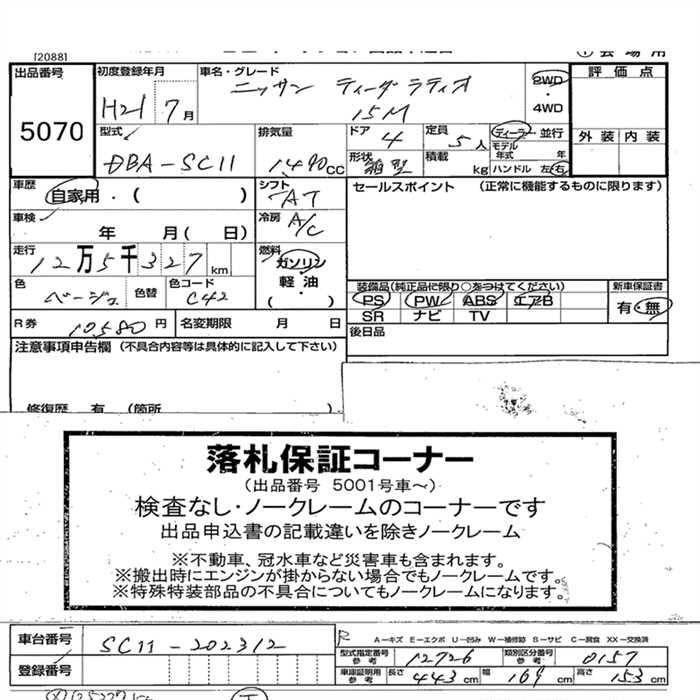 [2088]
出品番号
5070
初度登録年月
H21 7月
車名・グレード
ニッサン ティーダ ラティオ
15M
2WD
・
4WD
評価点
外装 内装
型式
DBA-SC11
排気量
1,490cc
ドア
4
定員
5人
形状
箱型
積載
kg
ディーラー・並行
モデル年式 年
ハンドル 左・右
車歴
自家用・( )
シフト
AT
セールスポイント (正常に機能するものに限ります)
車検
年 月(日)
冷房
A/C
走行
12万5千327km
燃料
ガソリン
軽油・
( )
色
ベージュ
色替
色コード
C42
装備品(純正品に限り○をつけてください)
PS PW ABS エアB
SR ナビ TV
新車保証書
有・無
R券
10,580円
名変期限 月 日
後日品
注意事項申告欄 (不具合内容等は具体的に記入して下さい)
修復歴 有 (箇所 )
落札保証コーナー
(出品番号 5001号車~)
検査なし・ノークレームのコーナーです
出品申込書の記載違いを除きノークレーム
※不動車、冠水車など災害車も含まれます。
※搬出時にエンジンが掛からない場合でもノークレームです。
※特殊特装部品の不具合についてもノークレームになります。
車台番号
SC11-202312
登録番号
R
A-キズ E-エクボ U-凹み W-補修跡 S-サビ C-腐食 XX-交換済
型式指定番号
参考
12726
類別区分番号
参考
0157
車庫証明用
参考
長さ 443cm 幅 169cm 高さ 153cm